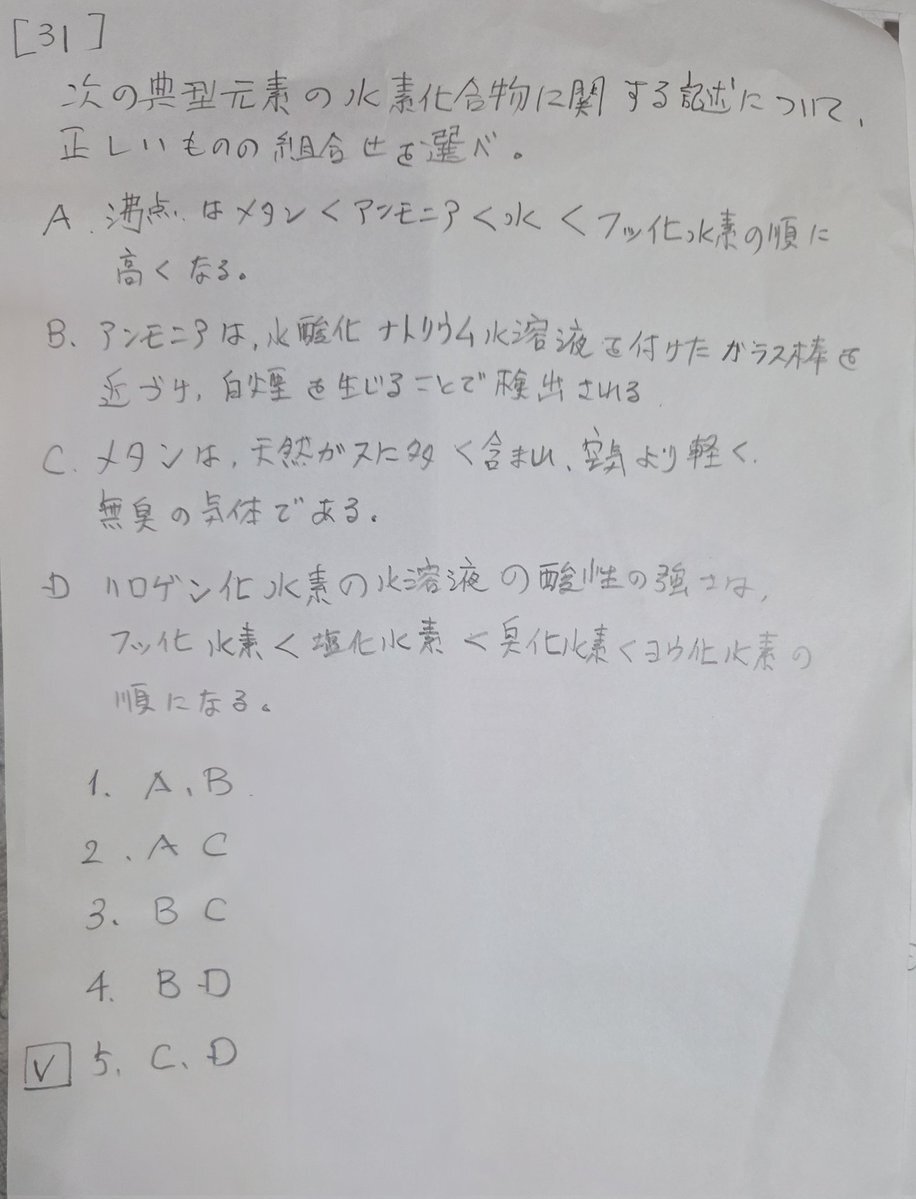 [31]
次の典型元素の水素化合物に関する記述について、
正しいものの組合せを選べ。
A. 沸点はメタン<アンモニア<水<フッ化水素の順に
高くなる。
B. アンモニアは、水酸化ナトリウム水溶液を付けたガラス棒を
近づけ、白煙を生じることで検出される
C. メタンは、天然ガスに多く含まれ、空気より軽く、
無臭の気体である。
D ハロゲン化水素の水溶液の酸性の強さは、
フッ化水素<塩化水素<臭化水素<ヨウ化水素の
順になる。
1. A、B
2. A C
3. B C
4. B D
V 5. C、D